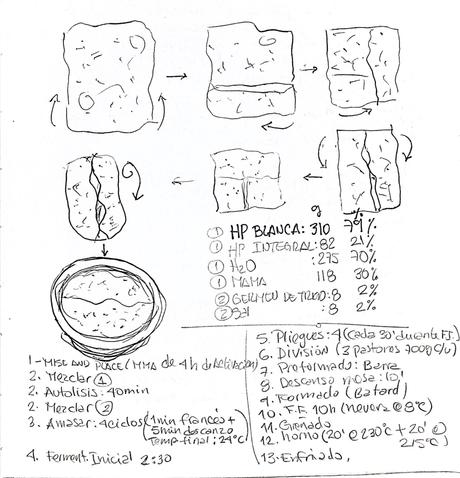 g %
① HP BLANCA: 310 79%
① HP INTEGRAL: 82 21%
① H2O : 275 70%
① MAMA 118 30%
② GERMEN DE TRIGO: 8 2%
② Sal : 8 2%
1 - MISE AND PLACE / MMA de 4h de Activacion
2. Mezclar ①
2. Autolisis: 40min
2. Mezclar ②
3. Amasar: 4ciclos (1min francés +
5min descanzo
Temp-final: 24°C)
4. Ferment. Inicial 2:30
5. Pliegues: 4 (cada 30' durante F.I.
6. División (3 pastores 700g c/u)
7. Proformado: Barra
8. Descanso mesa: 10'
9. Formado (Batard)
10. F.F. 10h (nevera @ 8°C)
11. Grenado
12. horno (20' @ 230°C + 20' @
215°C)
13. Enfriado,